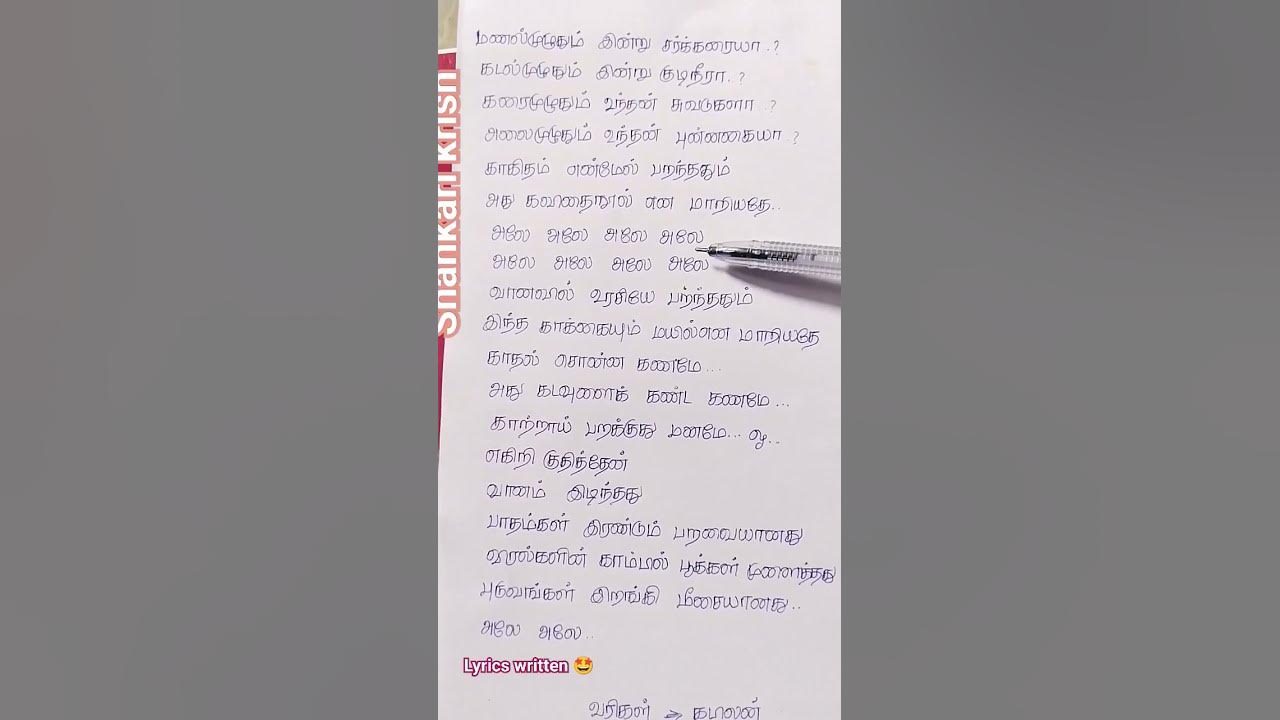 Shankari krish
மணல்முழுதும் இன்று சர்க்கரையா..?
கடல்முழுதும் இன்று குடிநீரா..?
கரைமுழுதும் உந்தன் சுவடுகளா ?
அலைமுழுதும் உந்தன் புன்னகையா..?
காகிதம் என்மேல் பறந்ததும்
அது கவிதைநூல் என மாறியதே..
அலே அலே அலே அலே
அலே அலே அலே அலே
வானவில் உரசியே பறந்ததும்
இந்த காக்கையும் மயில்என மாறியதே
காதல் சொன்ன கணமே...
அது கடவுளைக் கண்ட கணமே...
காற்றாய் பறக்குது மனமே... ஓ..
எகிறி குதித்தேன்
வானம் இடிந்தது
பாதம்கள் இரண்டும் பறவையானது
விரல்களின் காம்மல் பூக்கள் முளைத்தது
புருவங்கள் இறங்கி மீசையானது..
அலே அலே..
Lyrics written 🤩
வரிகள் → கபிலன்